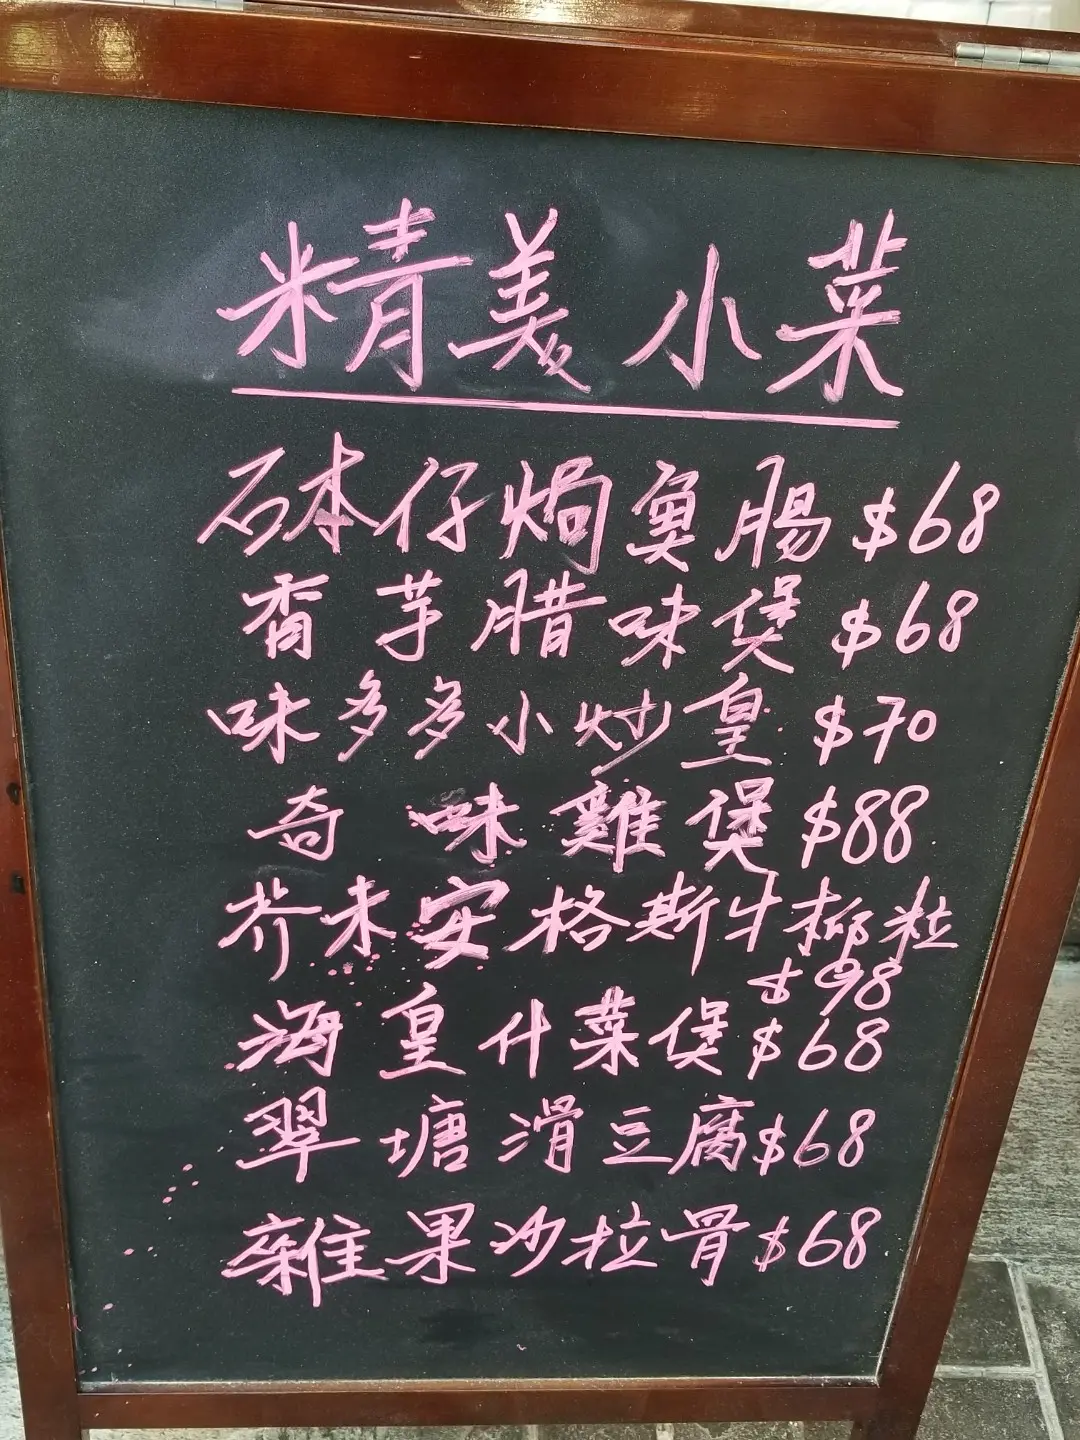 精美小菜
砵仔焗魚腸$68
香芋腊味煲$68
味多多小炒皇$70
奇味雞煲$88
芥末安格斯牛柳粒
$98
海皇什菜煲$68
翠塘滑豆腐$68
雜果沙拉骨$68